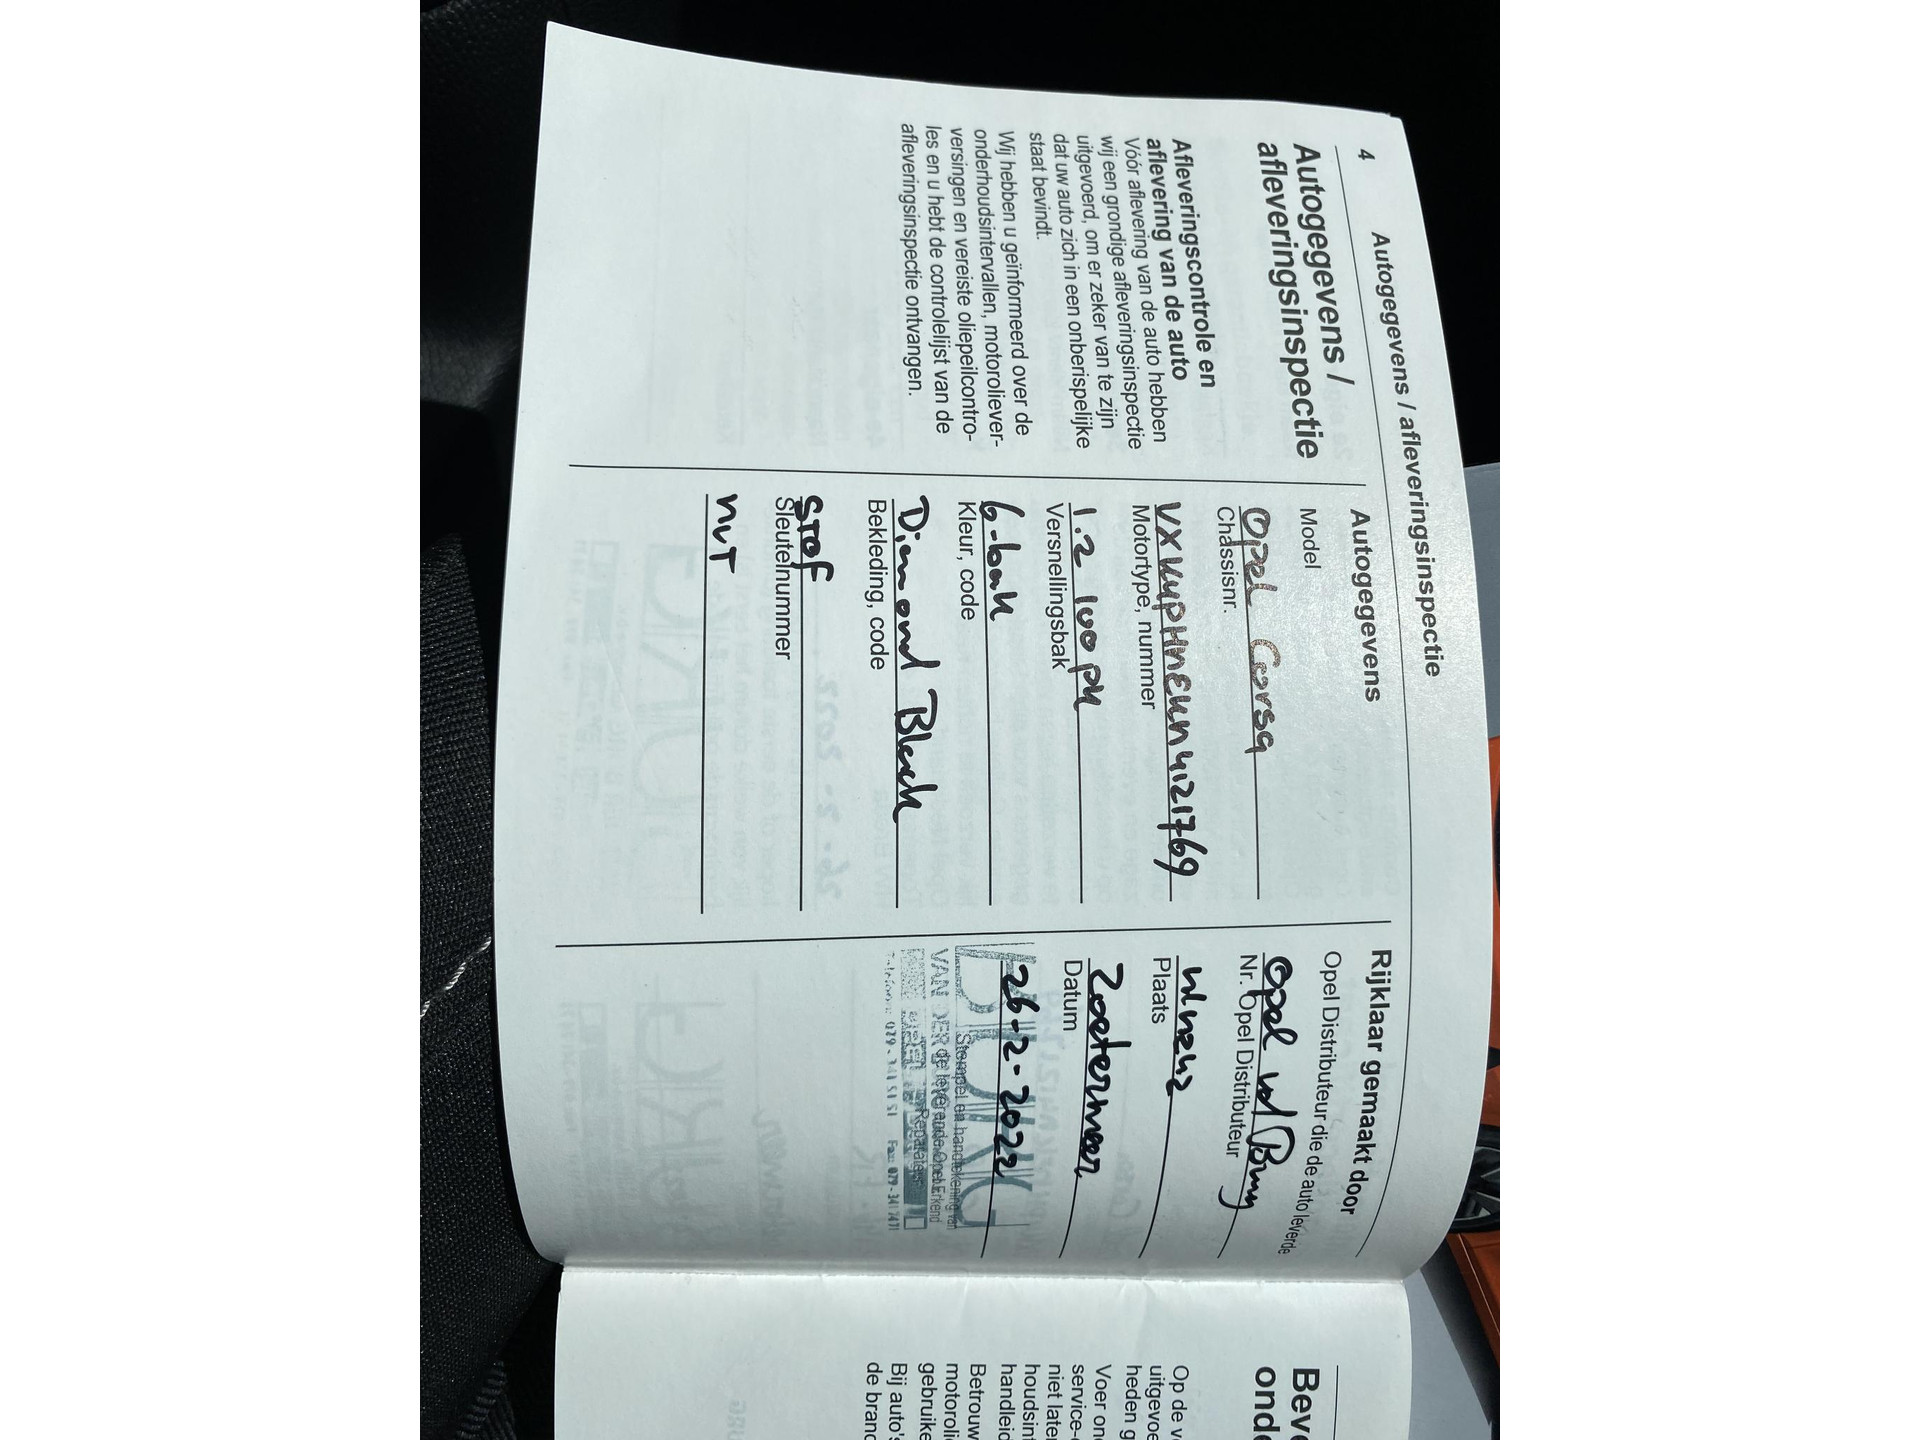 4
Autogegevens / afleveringsinspectie
Autogegevens /
afleveringsinspectie
Afleveringscontrole en
aflevering van de auto
Vóór aflevering van de auto hebben
wij een grondige afleveringsinspectie
uitgevoerd, om er zeker van te zijn
dat uw auto zich in een onberispelijke
staat bevindt.
Wij hebben u geïnformeerd over de
onderhoudsintervallen, motoroliever-
versingen en vereiste oliepeilcontro-
les en u hebt de controlelijst van de
afleveringsinspectie ontvangen.
Autogegevens
Model
Opel Corsa
Chassisnr.
Motortype, nummer
1.2 100 pk
Versnellingsbak
6-bak
Kleur, code
Diamond Black
Bekleding, code
Stof
Sleutelnummer
nvT
Rijklaar gemaakt door
Opel Distributeur die de auto leverde
Opel vd Burg
Nr. Opel Distributeur
Plaats
Zoetermeer
Datum
26-2-2022
Stempel en handtekening van
de leverende Opel Erkend
Reparateur
VAN DER
BURG
Telefoon: 079 - 341 51 51 Fax: 079 - 341 74 71
Beve
onde
Op de v
uitgevoe
heden g
Voer ond
service-
niet later
houdsint
handleid
Betrouw
motoroli
gebruike
Bij auto's
de brand